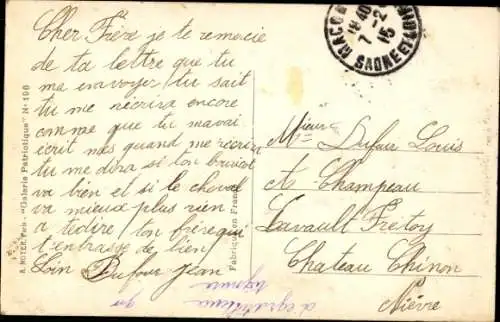 Cher Frère je te remercie
de ta lettre que tu
ma envoyer tu sait
tu me récrira encore
comme que tu mavai
écrit mes quand me récrira
tu me dira si ton
va bien et si le cheval
va mieux plus rien
a tédire ton frère qui
t'enbrasse de bien
Loin Dufour Jean
A. NOYER, Paris - "Galerie Patriotique" N° 198
Fabriqué en France
MACON
18 40
7 - 2
15
SAONE ET LOIRE
Mieur Dufour Louis
A Champeau
Lavault Fretoy
Chateau Chinon
Nièvre